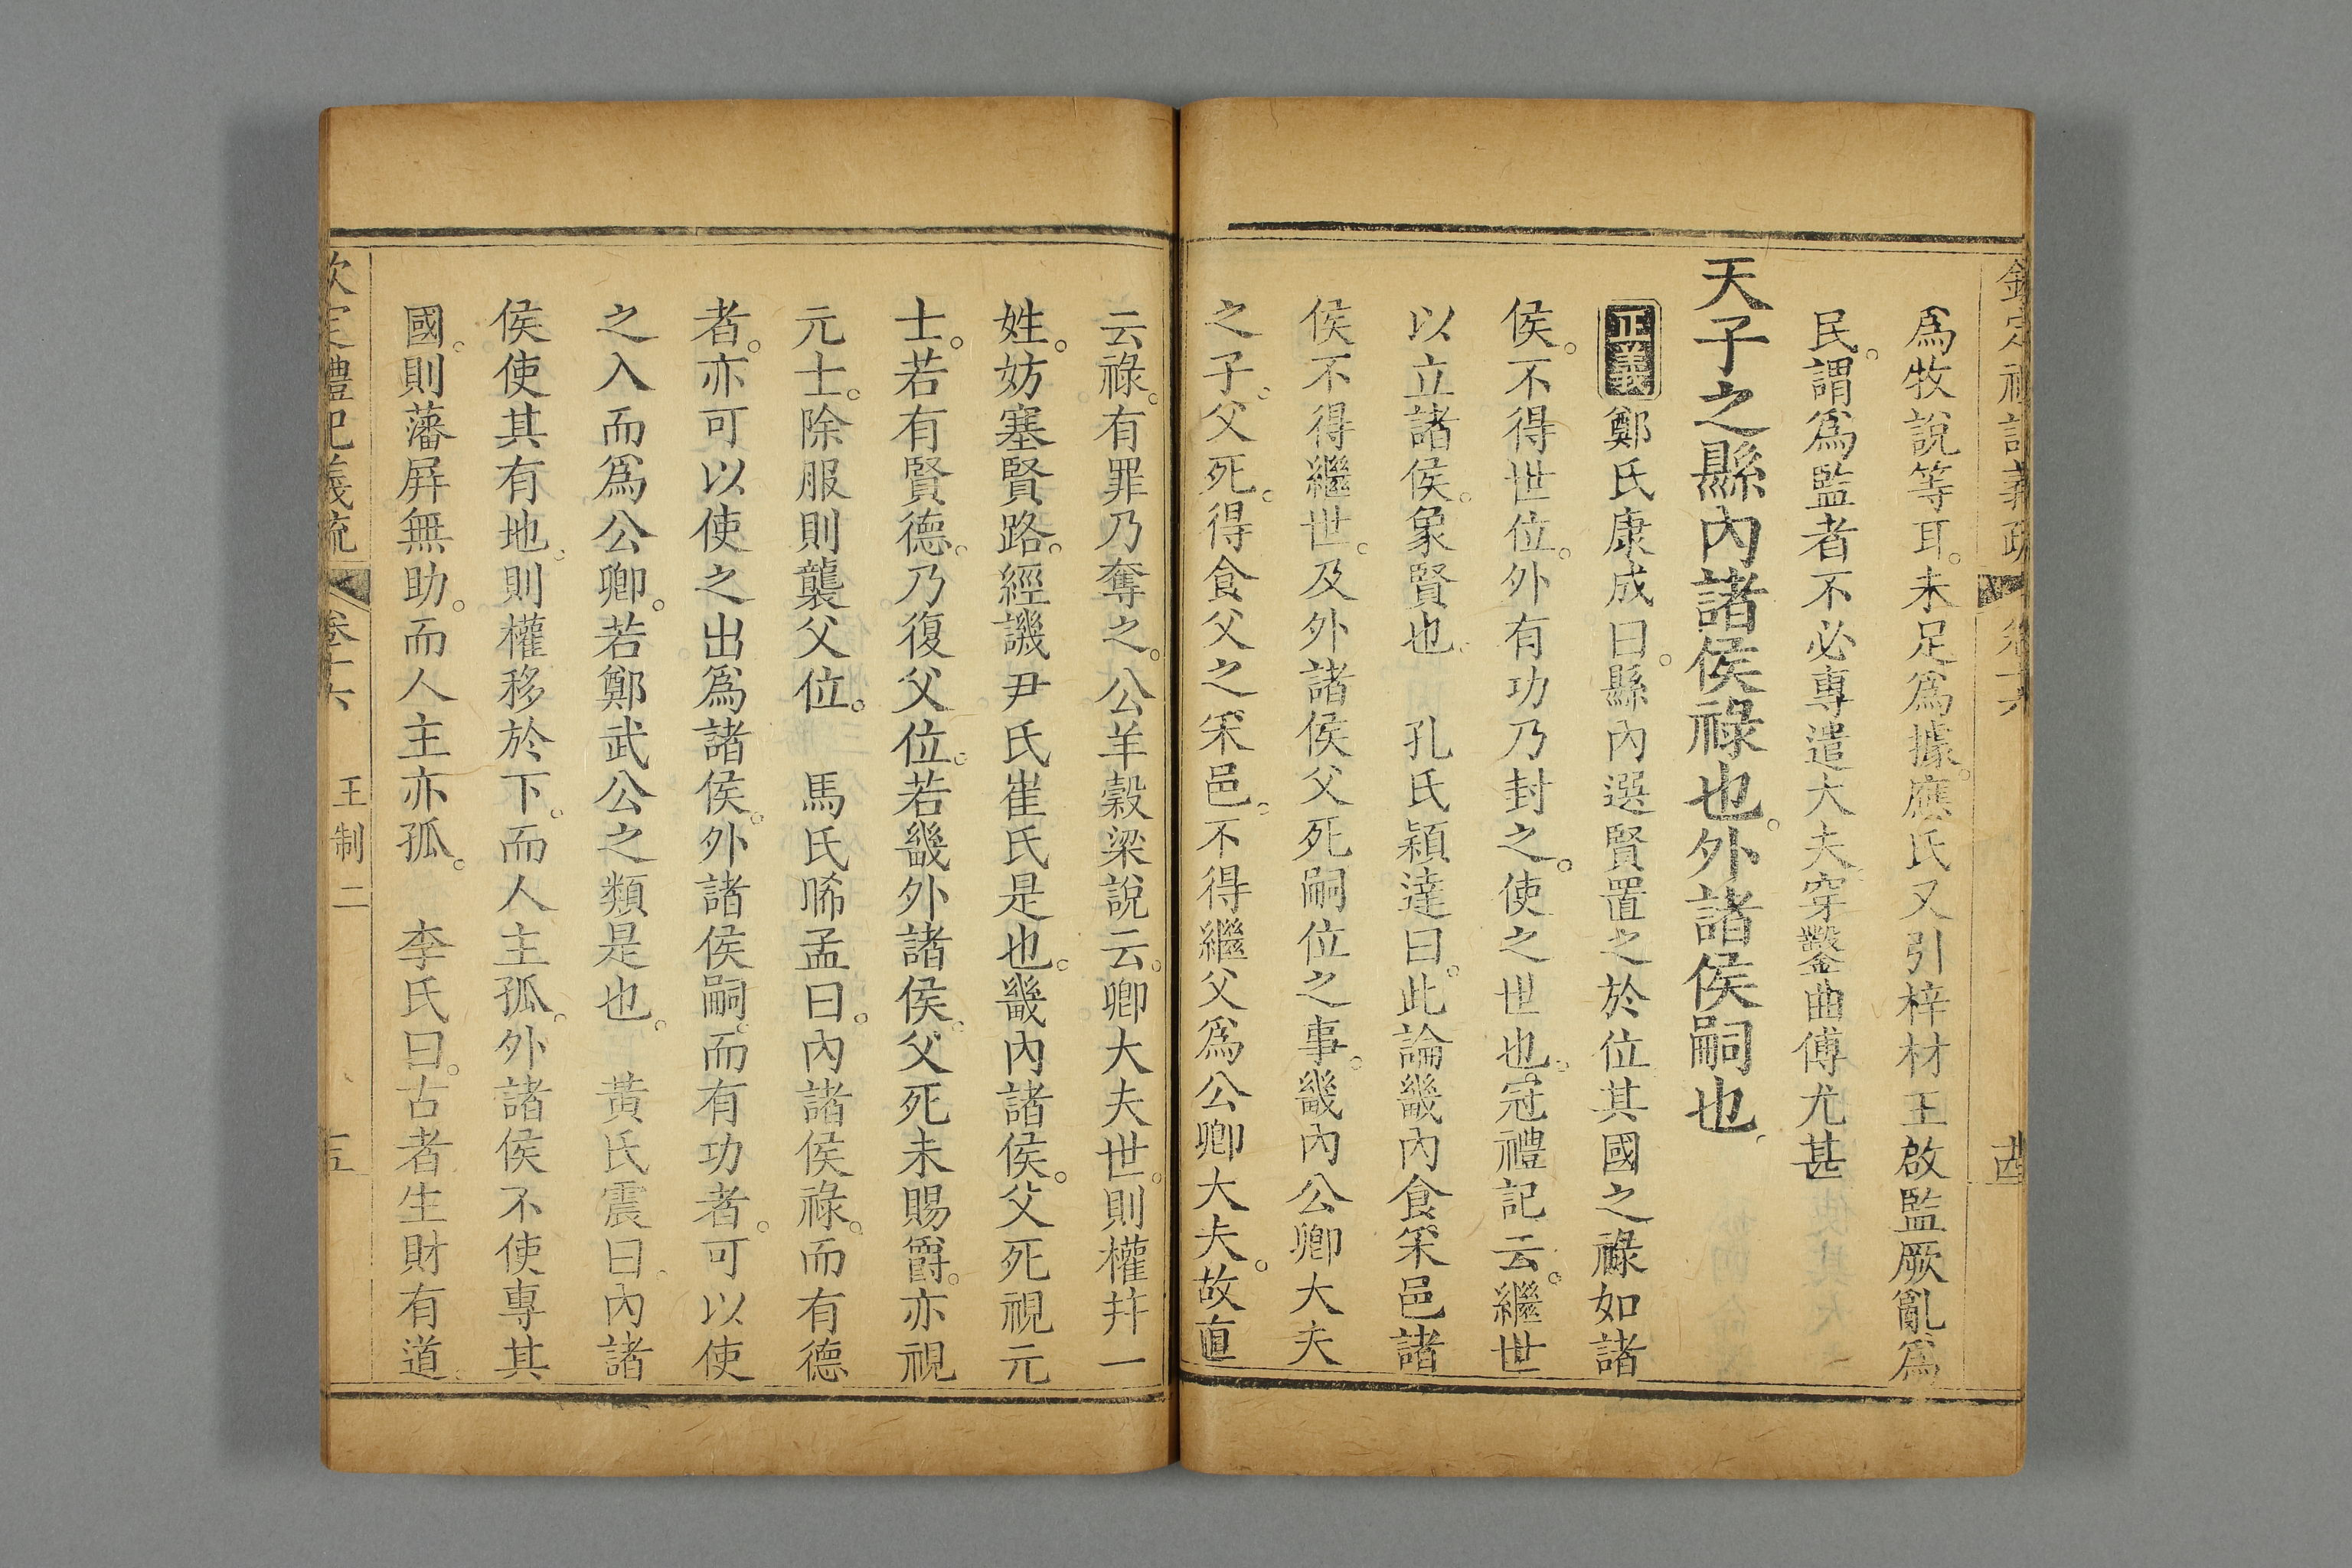 欽定禮記義疏 卷十六
爲牧說等耳。未足爲據。應氏又引梓材王啟監厥亂爲
民。謂爲監者不必專遣大夫。穿鑿曲傅尤甚
天子之縣內諸侯祿也。外諸侯嗣也。
正義 鄭氏康成曰。縣內選賢置之於位其國之祿如諸
侯。不得世位。外有功乃封之。使之世也。冠禮記云。繼世
以立諸侯。象賢也。 孔氏穎達曰。此論畿內食采邑諸
侯不得繼世。及外諸侯父死嗣位之事。畿內公卿大夫
之子。父死。得食父之采邑。不得繼父爲公卿大夫。故直
云祿。有罪乃奪之。公羊穀梁說云。卿大夫世。則權并一
姓。妨塞賢路。經譏尹氏崔氏是也。畿內諸侯。父死視元
士。若有賢德。乃復父位。若畿外諸侯。父死未賜爵。亦視
元士。除服則襲父位。 馬氏睎孟曰。內諸侯祿。而有德
者。亦可以使之出爲諸侯。外諸侯嗣。而有功者。可以使
之入而爲公卿。若鄭武公之類是也。 黃氏震曰。內諸
侯使其有地。則權移於下。而人主孤。外諸侯不使專其
國。則藩屏無助。而人主亦孤。 李氏曰。古者生財有道
欽定禮記義疏 卷十六 王制二